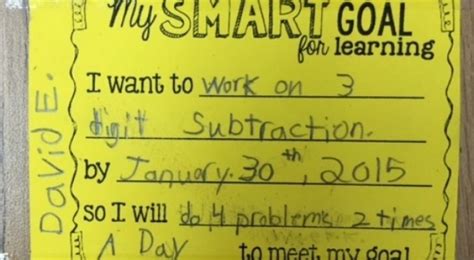 My SMART GOAL
for learning
David E.
I want to work on 3
digit Subtraction.
by January. 30th, 2015
so I will do 4 problems 2 times
A Day to meet my goal